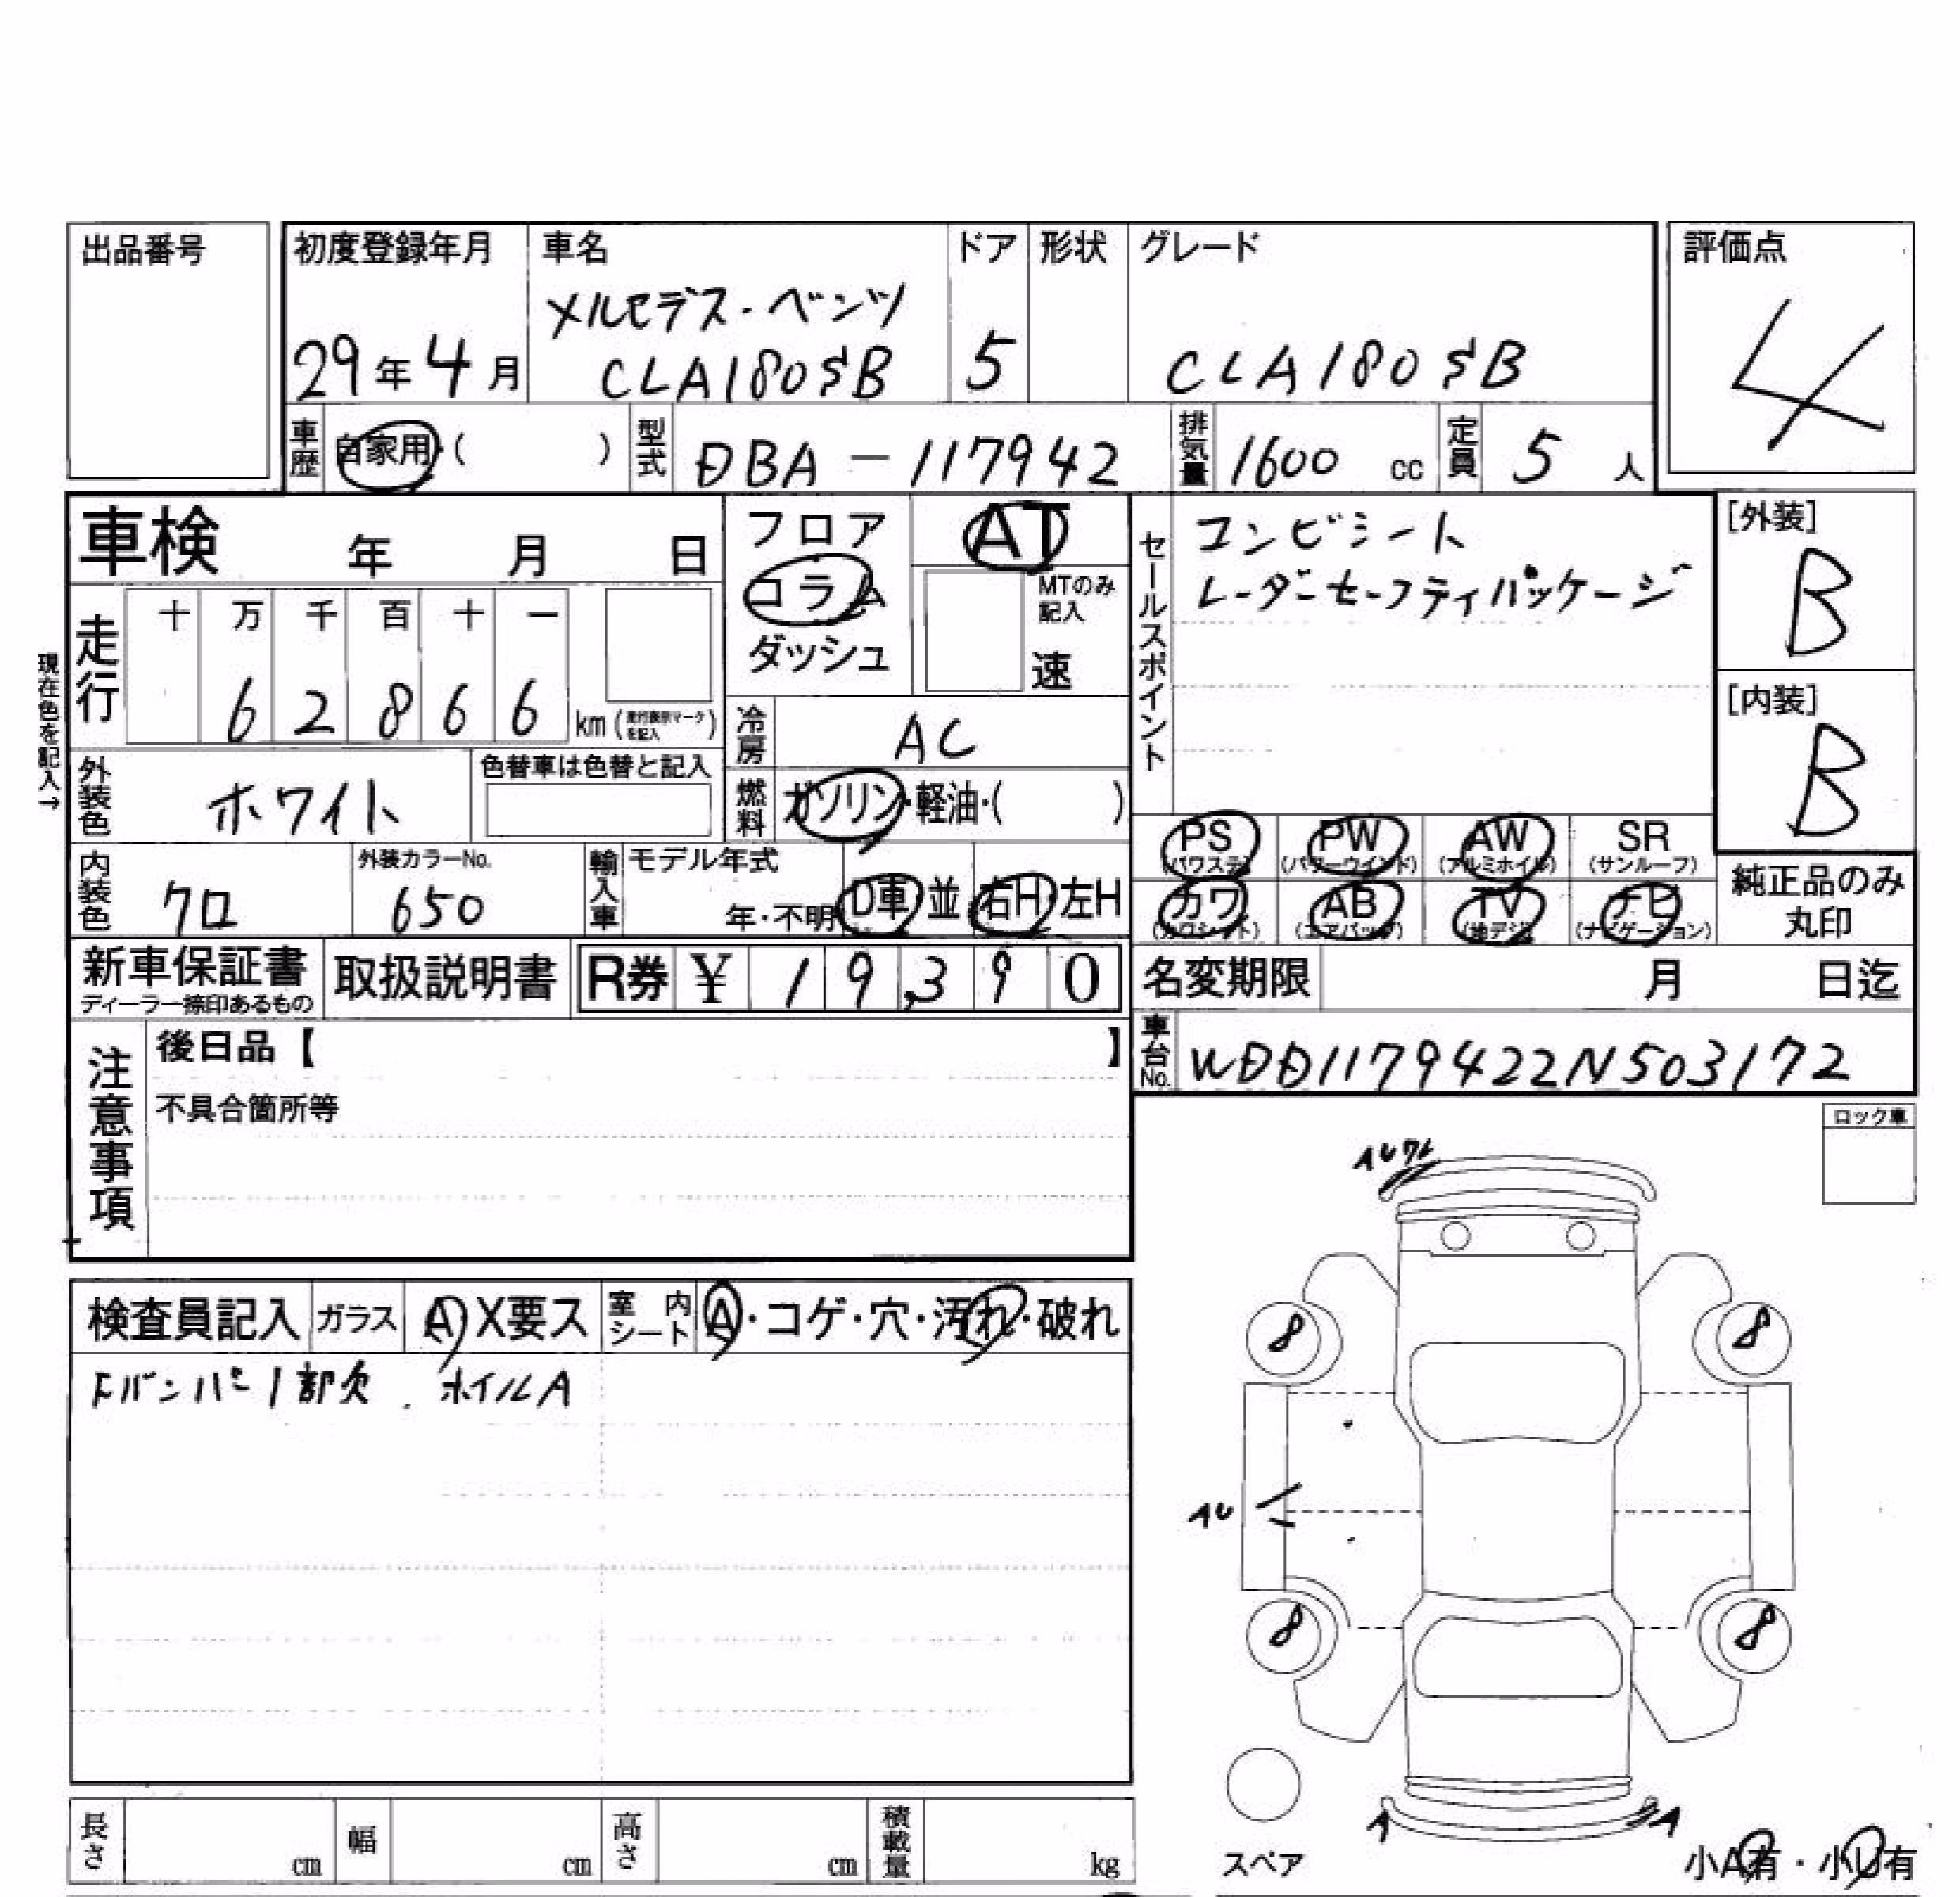 出品番号
初度登録年月 車名 ドア 形状 グレード 評価点
メルセデス・ベンツ
29年4月 CLA180SB 5 CLA180SB 4
車歴 自家用・( ) 型式 DBA-117942 排気量 1600 cc 定員 5 人
車検 年 月 日
フロア AT
コラム MTのみ記入
ダッシュ 速
セールスポイント コンビシート
レーダーセーフティパッケージ
[外装] B
[内装] B
現在色を記入→
走行 十 万 千 百 十 一
6 2 8 6 6 km (走行表示マークを記入)
冷房 AC
外装色 ホワイト 色替車は色替と記入
燃料 ガソリン・軽油・( )
PS (パワステ) PW (パワーウインド) AW (アルミホイル) SR (サンルーフ)
カワ (カワシート) AB (エアバッグ) TV (地デジ) ナビ (ナビゲーション)
純正品のみ丸印
内装色 クロ 外装カラーNo. 650 輸入車 モデル年式 年・不明 D車・並 右H・左H
新車保証書 ディーラー捺印あるもの 取扱説明書 R券 ¥ 19,390
名変期限 月 日迄
車台No. WDD1179422N503172
注意事項 後日品【 】
不具合箇所等
ロック車
検査員記入 ガラス A・X要ス 室内シート A・コゲ・穴・汚れ・破れ
Fバンパー1部欠. ホイルA
AUワレ
8 8
AU
8 8
A A
スペア
小A有・小U有
長さ cm 幅 cm 高さ cm 積載量 kg